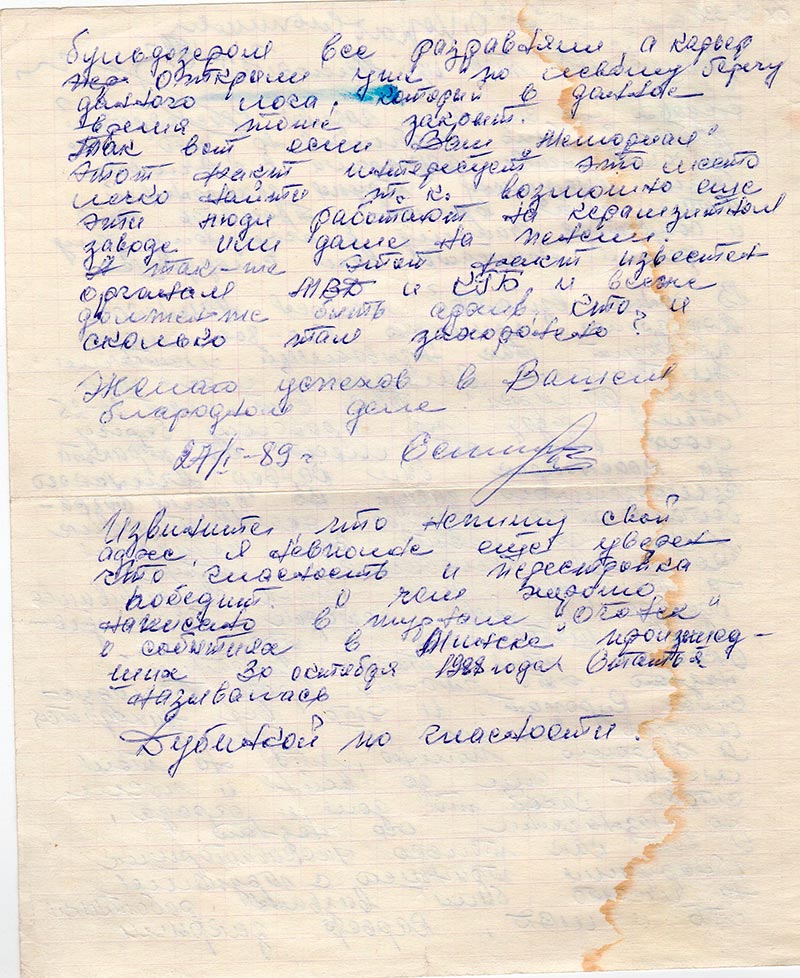 бульдозером все раздавили, а карьер
открыли уже по левому берегу
данного лога, который в данное
время тоже закрыт.
Так вот если Вам
этот факт интересует это место
легко найти т.к. возможно еще
эти люди работают на керамзитном
заводе или даже на пенсии.
А так-же этот факт известен
органам МВД и КГБ и
должен-же быть архив, кто и
сколько там захоронено?
Желаю успехов в Вашем
благородном деле.
27/I-89г.
Извините, что непишу свой
адрес, я невполне еще уверен
что гласность и перестройка
победит. О чем хорошо
написано в журнале "Огонек"
о событиях в Минске произшед-
ших 30 октября 1988 года. Статья
называлась
Дубинкой по гласности.